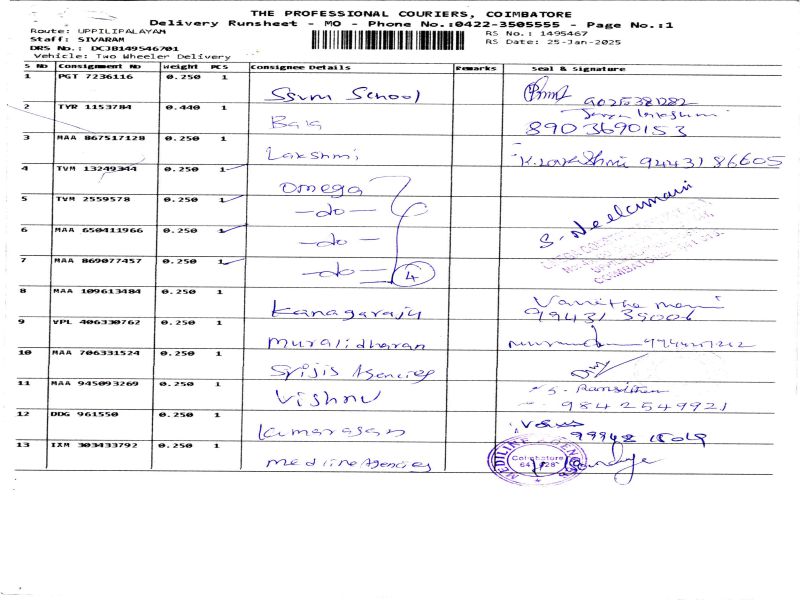 THE PROFESSIONAL COURIERS, COIMBATORE
Delivery Runsheet - MO - Phone No.:0422-3505555 - Page No.:1
Route: UPPILIPALAYAM
RS No.: 1495467
Staff: SIVARAM
RS Date: 25-Jan-2025
DRS No.: DCJB149546701
Vehicle: Two Wheeler Delivery
S No Consignment No Weight PCS Consignee Details Remarks Seal & Signature
1 PGT 7236116 0.250 1 SSVM School
2 TYR 1153784 0.440 1 Bala 8903690153
3 MAA 867517128 0.250 1 Lakshmi K. Lakshmi 9444318 6605
4 TVM 13249344 0.250 1 Omega
5 TVM 2559578 0.250 1 -do-
6 MAA 650411966 0.250 1 -do- S. Neelakumari
7 MAA 869077457 0.250 1 -do- 4
8 MAA 109613484 0.250 1 Kanagaraju 99431 39006
9 VPL 406330762 0.250 1 Muralidharan
10 MAA 706331524 0.250 1 Srijis Agencies
11 MAA 945093269 0.250 1 Vishnu 9842549921
12 DDG 961550 0.250 1 Kumarasan
13 IXM 303433792 0.250 1 Medline Agencies